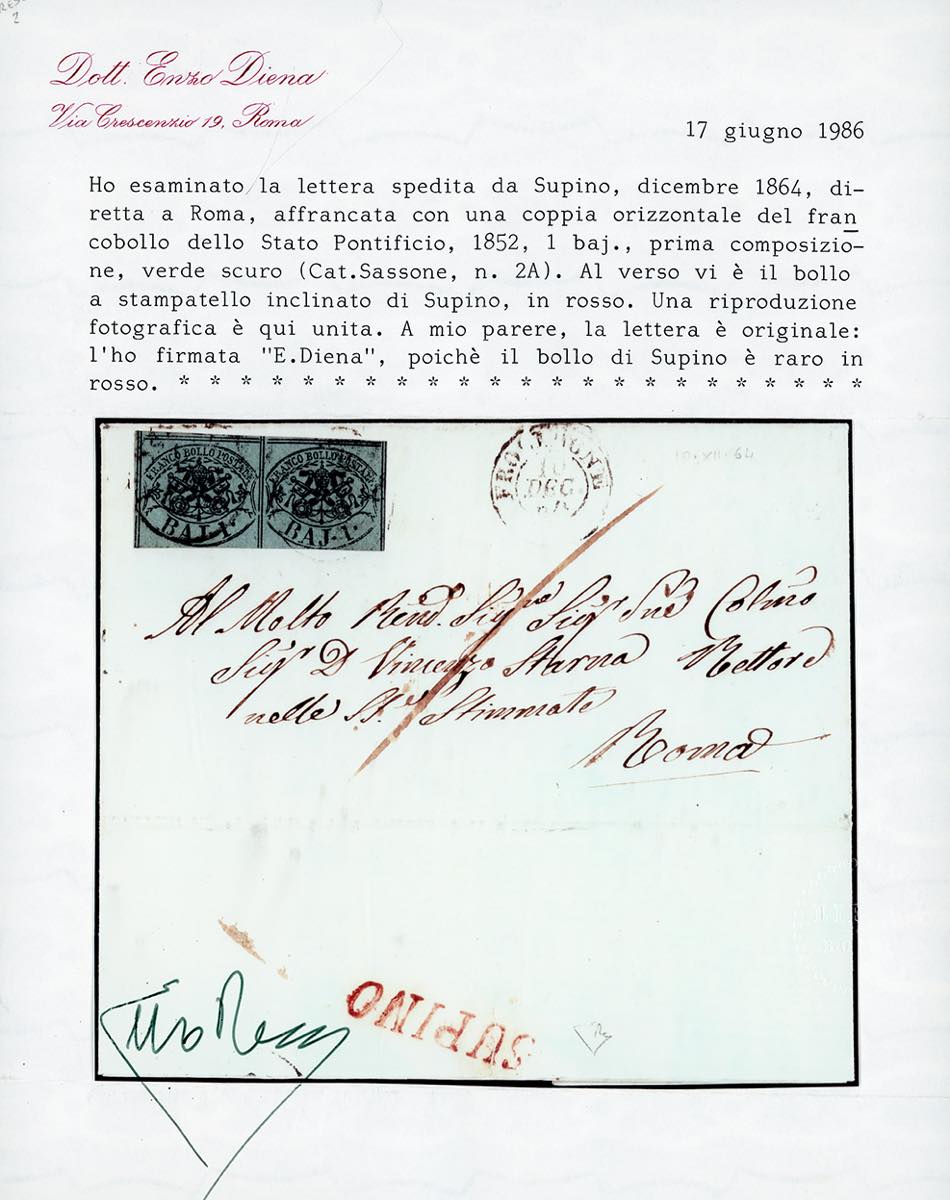 Dott. Enzo Diena
Via Crescenzio 19, Roma
17 giugno 1986
Ho esaminato la lettera spedita da Supino, dicembre 1864, di-
retta a Roma, affrancata con una coppia orizzontale del fran
cobollo dello Stato Pontificio, 1852, 1 baj., prima composizio-
ne, verde scuro (Cat.Sassone, n. 2A). Al verso vi è il bollo
a stampatello inclinato di Supino, in rosso. Una riproduzione
fotografica è qui unita. A mio parere, la lettera è originale:
l'ho firmata "E.Diena", poichè il bollo di Supino è raro in
rosso. * * * * * * * * * * * * * * * * * * * * * *
FRANCO BOLLO POSTALE
BAJ. 1.
FRANCO BOLLO POSTALE
BAJ. 1.
10 DEC
10·XII·64
Al Molto Rend. Sigre Sigr
Sigr D Vincenzo Sterna Rettore
nelle SSe Stimmate
Roma
SUPINO